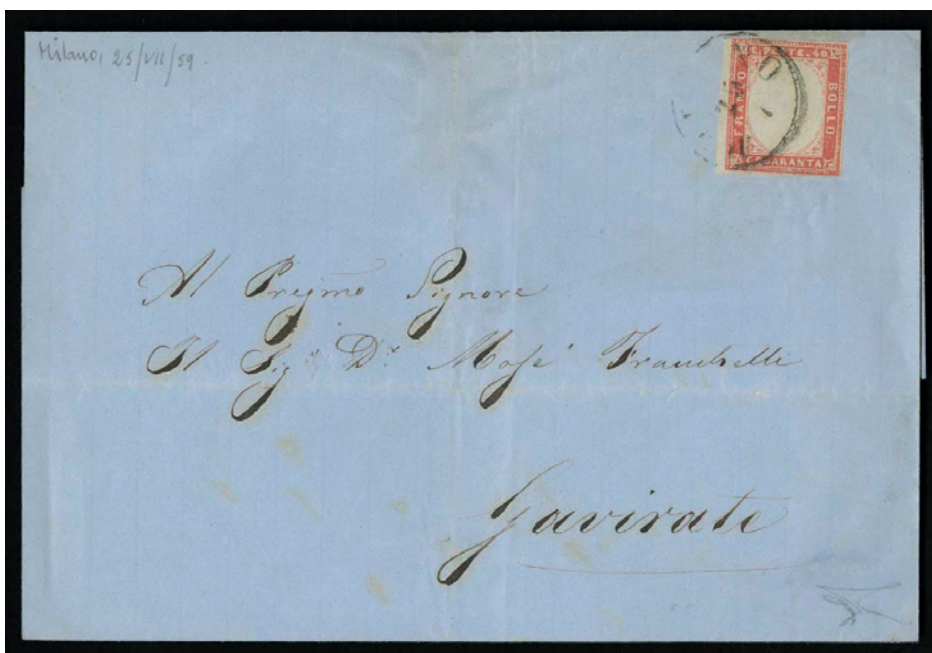 Milano, 25/VII/59
C. POSTE. 40
FRANCO
BOLLO
QUARANTA
Al Pregmo Signore
Il Sigr Dr. Mosé
Gavirate